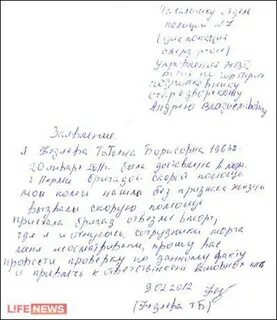 Начальнику отдела
полиции №7
(дислокация
Свердл. р-на)
Управления МВД
подполковнику
Старозворнову
Андрею Владиславовичу
Заявление.
Я Федяева Татьяна Борисовна 1963 г.
20 января 2011 г. была доставлена в морг
г Перми бригадой скорой помощи
мои коллеги нашли без признака жизни
вызвали скорую помощь
приехала бригада отвезли в морг,
где я и очнулась, сотрудники морга
меня посматривали, прошу вас
провести проверку по данному факту
и привлечь к ответственности виновных лиц
9.02.2012
(Федяева Т.Б.)
LIFENEWS